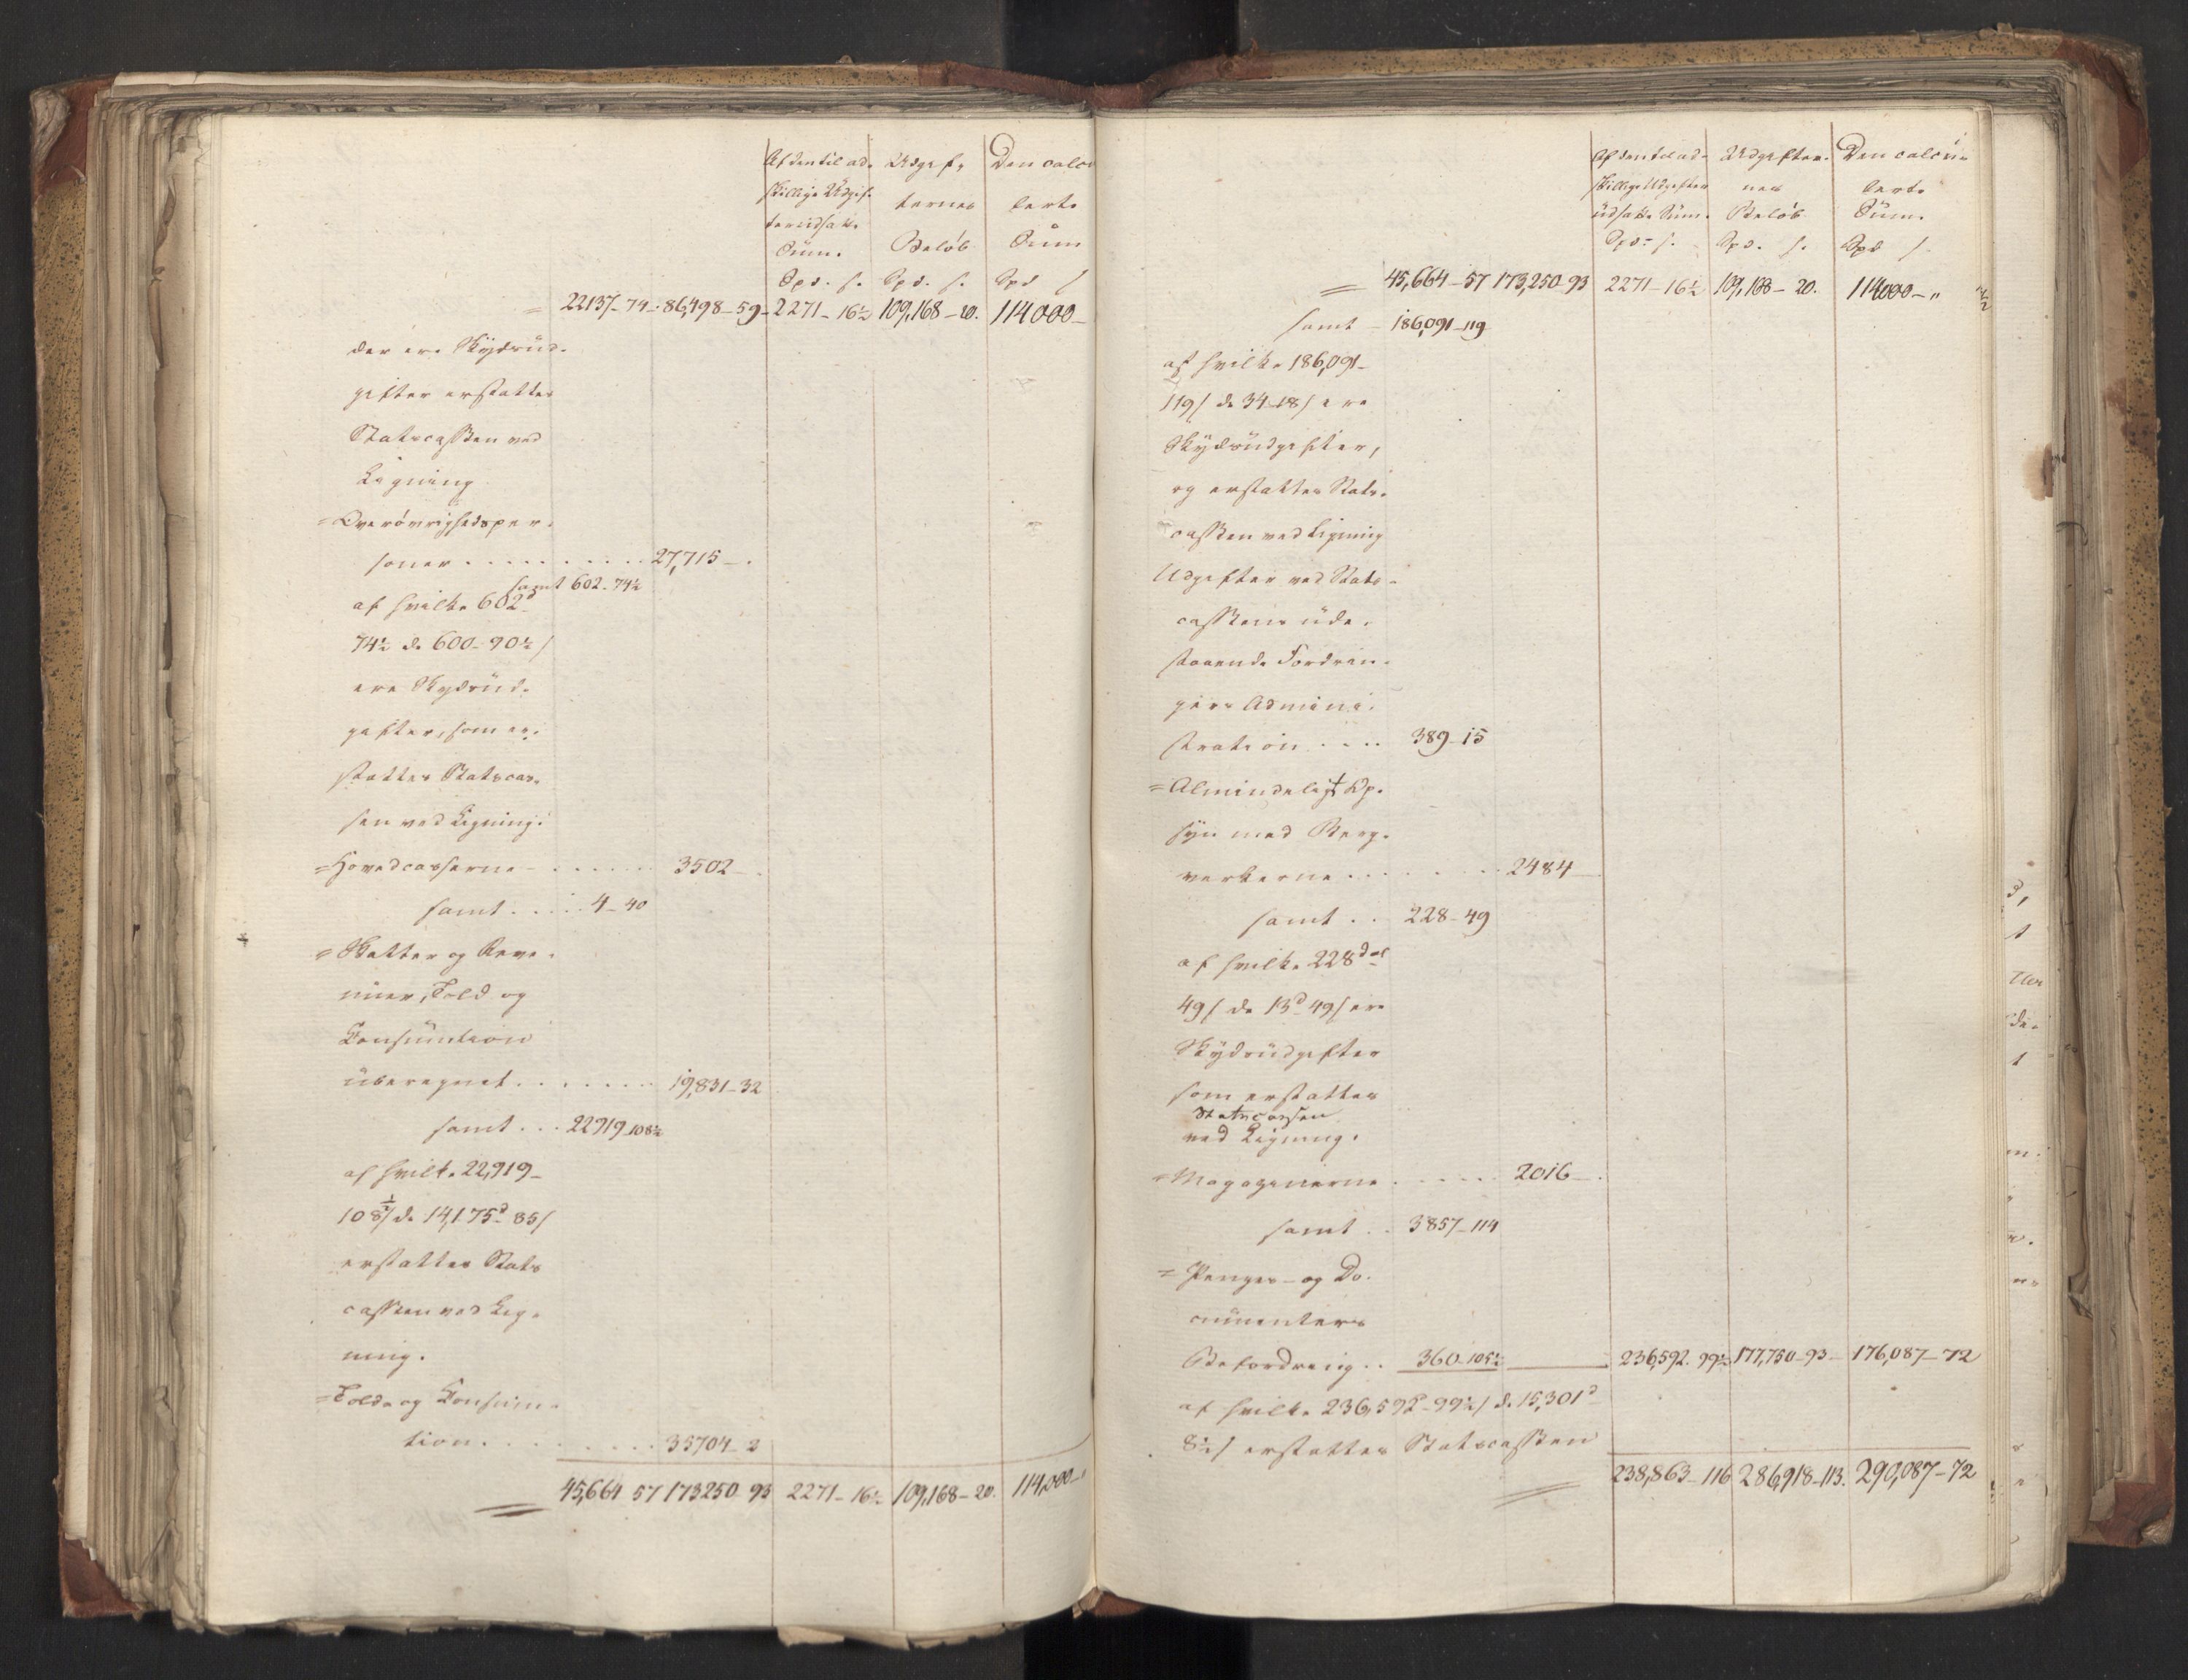 Af den til ad-
skillige Udgif-
ter udsatte
Sum.
Spd. s.
Udgif-
ternes
Beløb
Spd. s.
Den calcu
lerte
Sum
Spd s
= 22137-74- 86,498-59- 2271-16½ 109,168-20. 114000-
der ere Skydsud-
gifter erstattes
Statscassen ved
Ligning
= Overøvrighedsper-
soner . . . . . . . . . 27,715-.
samt 602-74½
af hvilke 602d
74½ de 600-90½ s
ere Skydsud-
gifter, som er-
stattes Statscas-
sen ved Ligning.
= Hovedcasserne - . . . . . . 3502-.
samt . . . . . 4-40
= Skatter og Reve-
nuer, Told og
Consumtion
uberegnet . . . . . . . 19,831-32
samt . . . 22919-108½
af hvilke 22,919-
108½ s de 14,175d 85 s
erstattes Stats
cassen ved Lig-
ning.
= Told- og Consum-
tion . . . . . . . . . 35704-2
= 45,664 57 173250-93 2271-16½ 109,168-20. 114,000-"
Af den til ad-
skillige Udgifter
udsatte Sum.
Spd. s.
Udgifter-
nes
Beløb
Spd. s.
Den calcu-
lerte
Sum.
Spd s.
= 45,664-57 173,250-93 2271-16½ 109,168-20. 114000-"
samt - 186,091-119
af hvilke 186,091-
119 s de 34-18 s ere
Skydsudgifter,
og erstattes Stats-
cassen ved Ligning
Udgifter ved Stats-
cassens ude-
staaende Fordrin-
gers Admini-
stration . . . . 389-15
= Almindeligt Op-
syn med Berg-
verkerne . . . . . . . 2484-
samt . . 228-49
af hvilke 228 dal
49 s de 13d 49 s ere
Skydsudgifter
som erstattes
Statscassen
ved Ligning.
= Magazinerne . . . . . 2016-.
samt . . 3857-114
= Penges- og Do-
cumenters
Befordring . . 360-105½ 236,592-99½ 177,750-93- 176,087-72
af hvilke 236,592-99½ s de 15,301d
8½ s erstattes Statscassen
= 238,863-116 286,918-113. 290,087-72